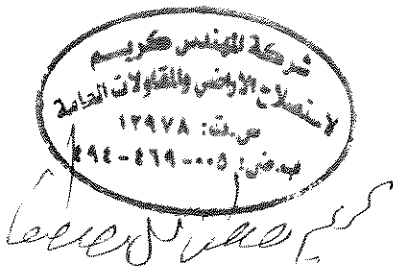 شركة المهندس كريم
لاستصلاح الاراضي والمقاولات العامة
س.ت: ١٢٩٧٨
ب.ض: ٠٠٥-٤٦٩-٤٩٤
كريم